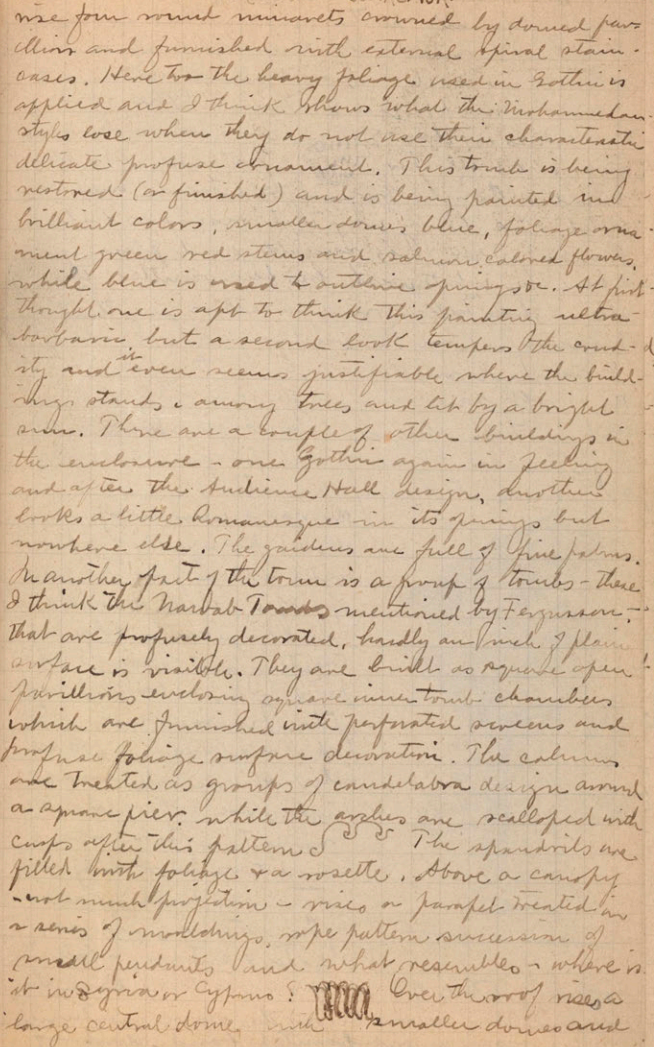 rise four round minarets crowned by domed pav-
illion and furnished with external spiral stair-
cases. Here too the heavy foliage used in Gothic is
applied and I think shows what the Mohammedan
styles lose when they do not use their characteristic
delicate profuse ornament. This tomb is being
restored (or finished) and is being painted in
brilliant colors, smaller domes blue, foliage orna-
ment green red stems and salmon colored flowers,
while blue is used to outline openings &c. At first
thought one is apt to think this painting ultra
barbaric, but a second look tempers the crud-
ity and it even seems justifiable where the build-
ings stands, among trees and lit by a bright
sun. There are a couple of other buildings in
the enclosure - one Gothic again in feeling
and after the Audience Hall design, another
looks a little Romanesque in its openings but
nowhere else. The gardens are full of fine palms.
In another part of the town is a group of tombs - these
I think the Nawab Tombs mentioned by Fergusson -
that are profusely decorated, hardly an inch of plain
surface is visible. They are built as square open
pavillions enclosing square inner tomb chambers
which are furnished with perforated screens and
profuse foliage surface decoration. The columns
are treated as groups of candelabra design around
a square pier, while the arches are scalloped with
cusps after this pattern The spandrils are
filled with foliage & a rosette. Above a canopy
- not much projection - rises a parapet treated in
a series of mouldings, rope pattern succession of
small pendants and what resembles - where is
it in Syria or Cyprus? Over the roof rises a
large central dome with smaller domes and